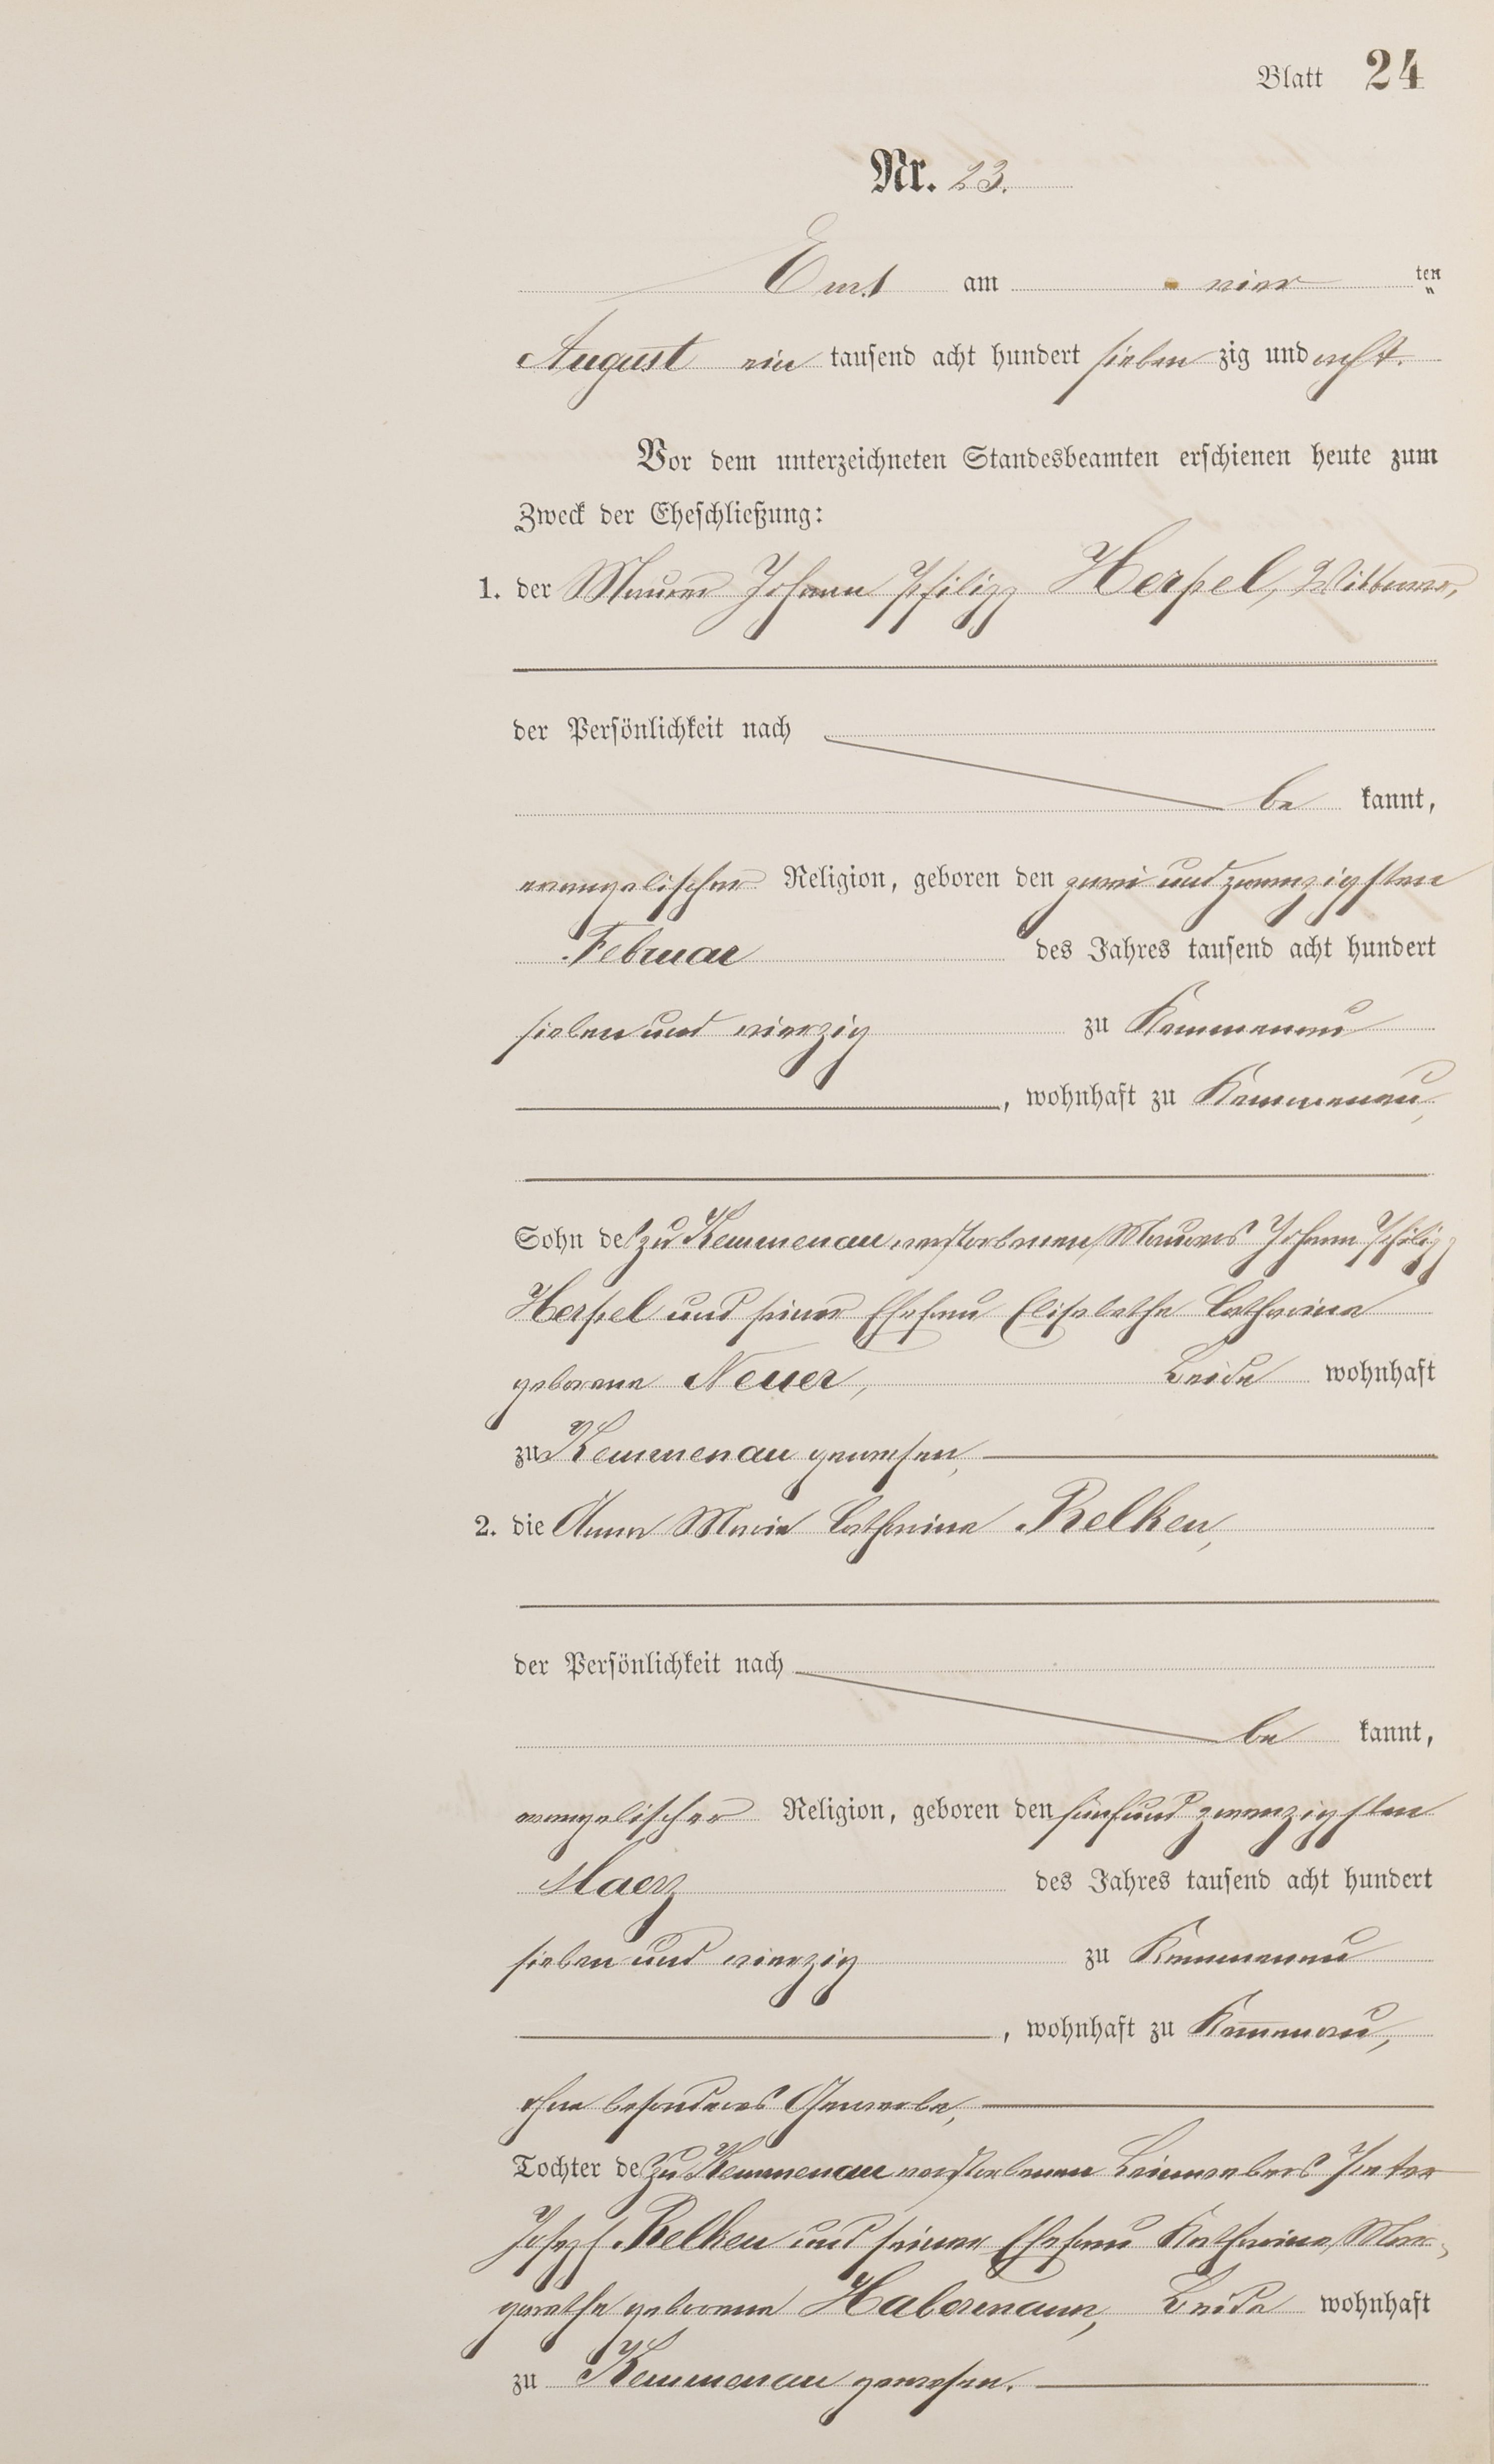 Blatt 24
Nr. 23.
Ems am vier ten
August ein tausend acht hundert sieben zig und acht.
Vor dem unterzeichneten Standesbeamten erschienen heute zum
Zweck der Eheschließung:
1. der Maurer Johann Philipp Herpel, Wittwer,
der Persönlichkeit nach
be kannt,
evangelischer Religion, geboren den zwei und zwanzigsten
Februar des Jahres tausend acht hundert
sieben und vierzig zu Kemmenau
, wohnhaft zu Kemmenau,
Sohn des zu Kemmenau verstorbenen Maurers Johann Philipp
Herpel und seiner Ehefrau Elisabethe Catharina
geborene Neuer, Beide wohnhaft
zu Kemmenau gewesen,
2. die Anna Maria Catharina Relken,
der Persönlichkeit nach
be kannt,
evangelischer Religion, geboren den fünf und zwanzigsten
Maerz des Jahres tausend acht hundert
sieben und vierzig zu Kemmenau
, wohnhaft zu Kem̅enau,
ohne besonderes Gewerbe,
Tochter des zu Kemmenau verstorbenen Leinwebers Peter
Joseph Relken und seiner Ehefrau Katharina Mar-
garethe geborene Habermann, Beide wohnhaft
zu Kemmenau gewesen.